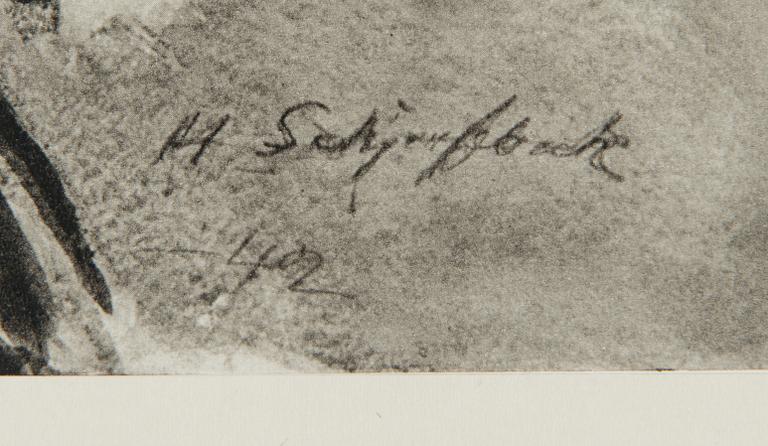 H Schjerfbeck
-42